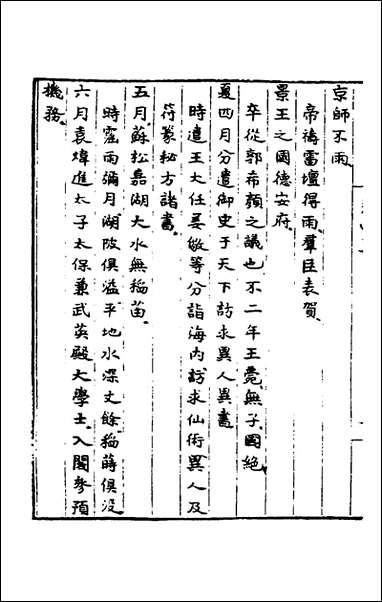 京師不雨
帝禱雷壇得雨羣臣表賀
景王之國德安府
卒從郭希顏之議也不二年王薨無子國絶
夏四月分遣御史于天下訪求異人異書
時遣王大任姜儆等分詣海内訪求仙術異人及
符篆秘方諸書
五月蘇松嘉湖大水無稻苗
時霪雨彌月湖陂俱溢平地水深丈餘稻蒔俱没
六月袁煒進太子太保兼武英殿大學士入閣參預
機務